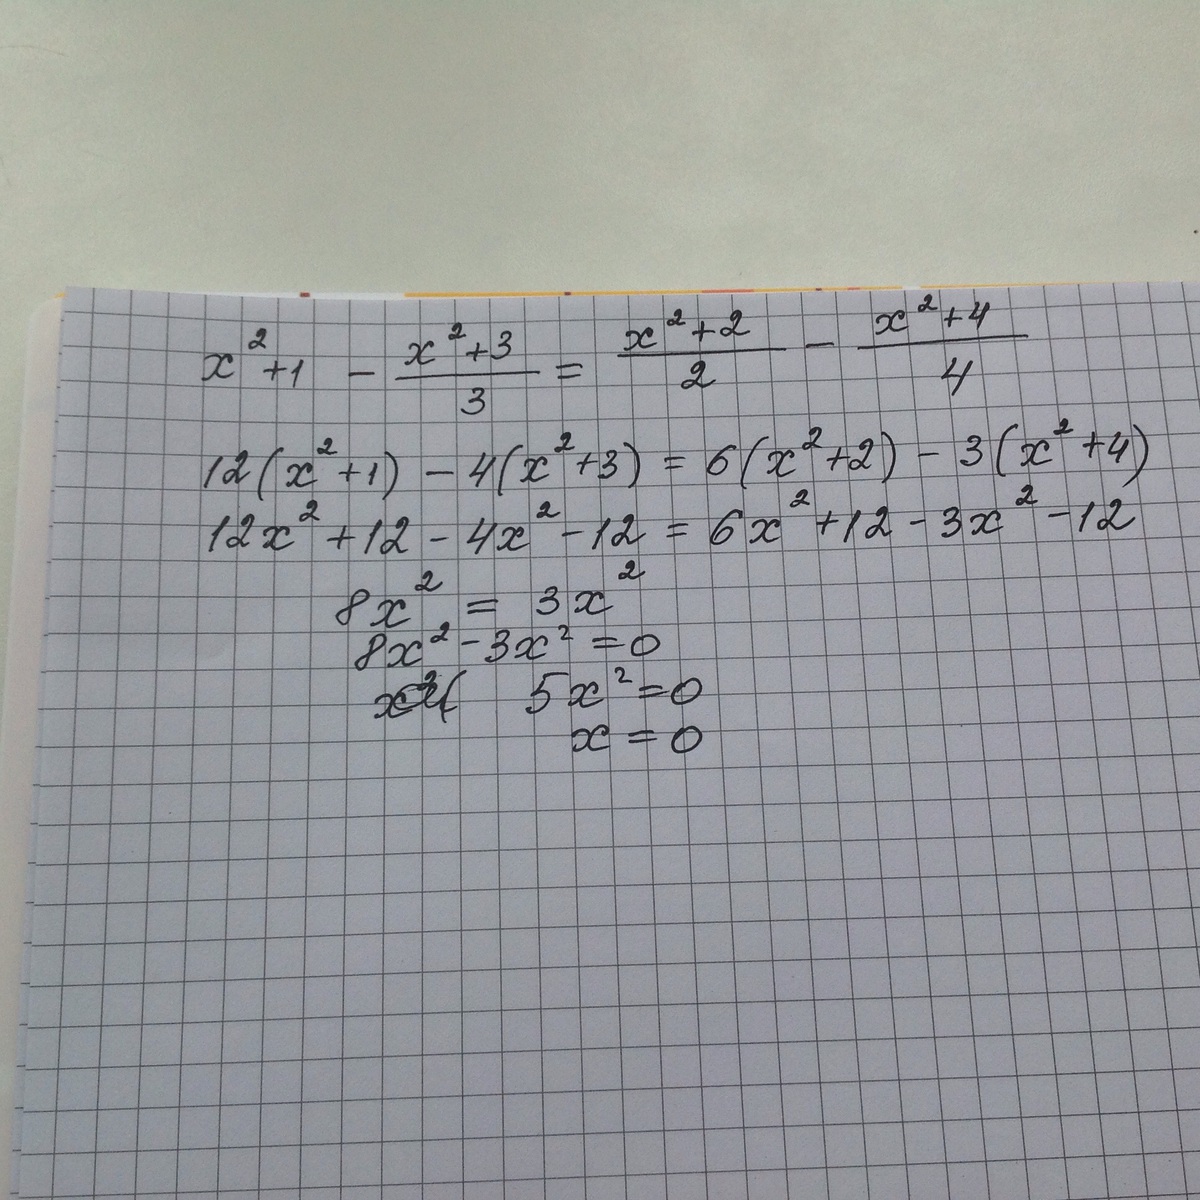 x² + 1 - (x² + 3)/3 = (x² + 2)/2 - (x² + 4)/4
12(x² + 1) - 4(x² + 3) = 6(x² + 2) - 3(x² + 4)
12x² + 12 - 4x² - 12 = 6x² + 12 - 3x² - 12
8x² = 3x²
8x² - 3x² = 0
5x² = 0
x = 0